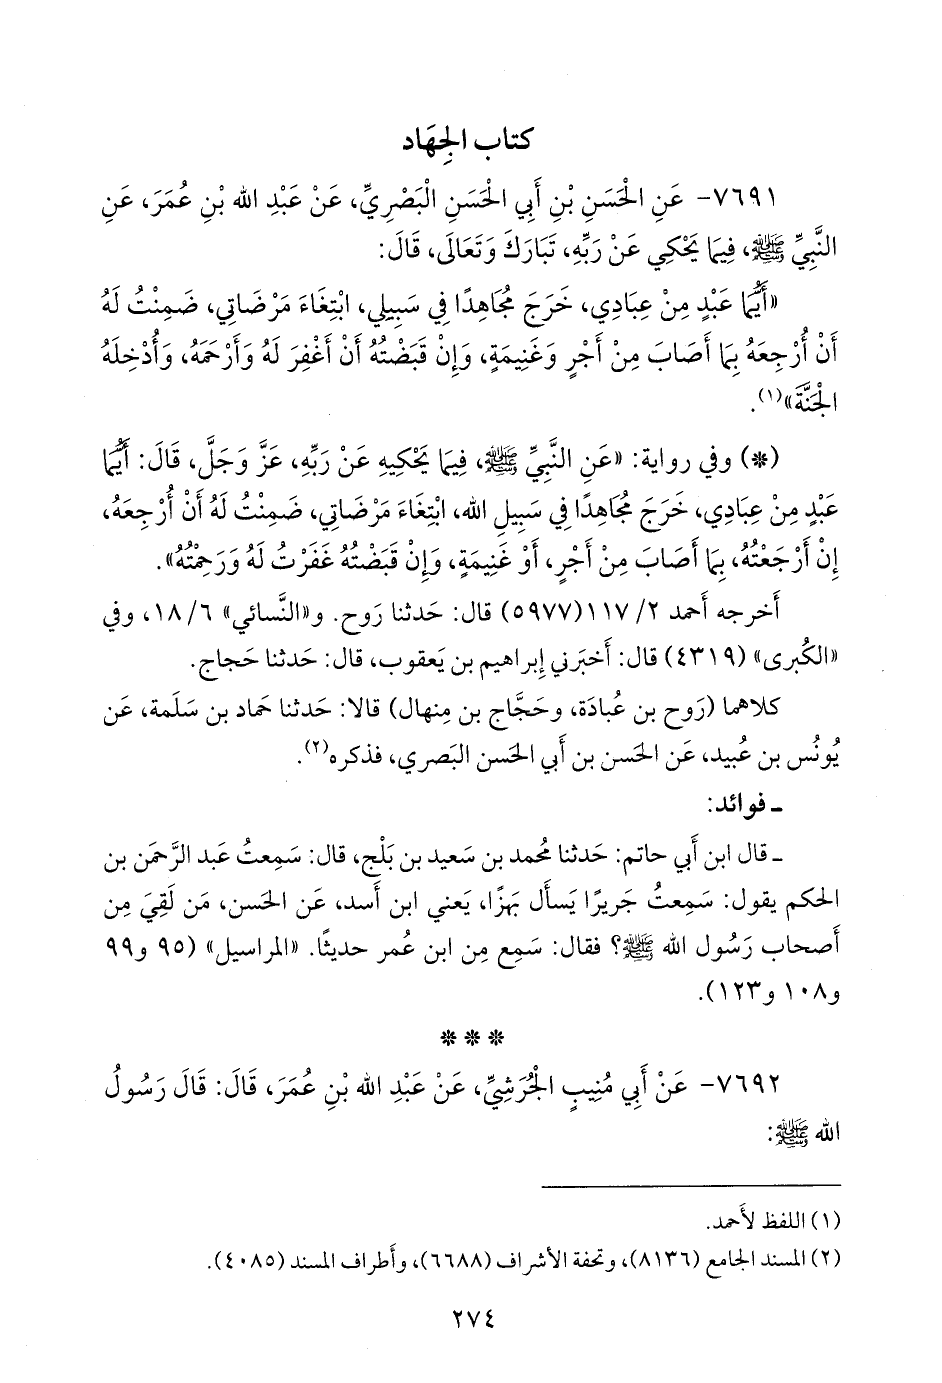 كتاب الجِهَاد
٧٦٩١- عَنِ الْحَسَنِ بْنِ أَبِي الْحَسَنِ الْبَصْرِيِّ، عَنْ عَبْدِ الله بْنِ عُمَرَ، عَنِ
النَّبِيِّ ﷺ، فِيمَا يَحْكِي عَنْ رَبِّهِ، تَبَارَكَ وَتَعَالَى، قَالَ:
«أَيُّمَا عَبْدٍ مِنْ عِبَادِي، خَرَجَ مُجَاهِدًا فِي سَبِيلِي، ابْتِغَاءَ مَرْضَاتِي، ضَمِنْتُ لَهُ
أَنْ أُرْجِعَهُ بِمَا أَصَابَ مِنْ أَجْرٍ وَغَنِيمَةٍ، وَإِنْ قَبَضْتُهُ أَنْ أَغْفِرَ لَهُ وَأَرْحَمَهُ، وَأُدْخِلَهُ
الْجَنَّةَ»(١).
(*) وفي رواية: «عَنِ النَّبِيِّ ﷺ، فِيمَا يَحْكِيهِ عَنْ رَبِّهِ، عَزَّ وَجَلَّ، قَالَ: أَيُّمَا
عَبْدٍ مِنْ عِبَادِي، خَرَجَ مُجَاهِدًا فِي سَبِيلِ الله، ابْتِغَاءَ مَرْضَاتِي، ضَمِنْتُ لَهُ أَنْ أُرْجِعَهُ،
إِنْ أَرْجَعْتُهُ، بِمَا أَصَابَ مِنْ أَجْرٍ، أَوْ غَنِيمَةٍ، وَإِنْ قَبَضْتُهُ غَفَرْتُ لَهُ وَرَحِمْتُهُ».
أَخرجه أَحمد ٢/ ١١٧(٥٩٧٧) قال: حَدثنا رَوح. و«النَّسائي» ٦/ ١٨، وفي
«الكُبرى» (٤٣١٩) قال: أَخبَرني إِبراهيم بن يَعقوب، قال: حَدثنا حَجاج.
كلاهما (رَوح بن عُبادَة، وحَجَّاج بن مِنهال) قالا: حَدثنا حَماد بن سَلَمة، عَن
يُونُس بن عُبيد، عَن الحَسن بن أَبي الحَسن البَصري، فذكره(٢).
ـ فوائد:
ـ قال ابن أَبي حاتم: حَدثنا مُحمد بن سَعيد بن بَلْج، قال: سَمِعتُ عَبد الرَّحمَن بن
الحكم يقول: سَمِعتُ جَريرًا يَسأَل بَهزًا، يَعني ابن أَسد، عَن الحَسن، مَن لَقِيَ مِن
أَصحاب رَسُول الله ﷺ؟ فقال: سَمِع مِن ابن عُمر حَديثًا. «المراسيل» (٩٥ و٩٩
و١٠٨ و١٢٣).
* * *
٧٦٩٢- عَنْ أَبِي مُنِيبٍ الْجُرَشِيِّ، عَنْ عَبْدِ الله بْنِ عُمَرَ، قَالَ: قَالَ رَسُولُ
الله ﷺ:
(١) اللفظ لأَحمد.
(٢) المسند الجامع (٨١٣٦)، وتحفة الأشراف (٦٦٨٨)، وأَطراف المسند (٤٠٨٥).
٢٧٤